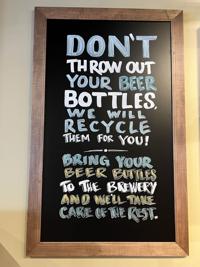 DON'T
THROW OUT
YOUR BEER
BOTTLES,
WE WILL
RECYCLE
THEM FOR YOU!
BRING YOUR
BEER BOTTLES
TO THE BREWERY
AND WE'LL TAKE
CARE OF THE REST.